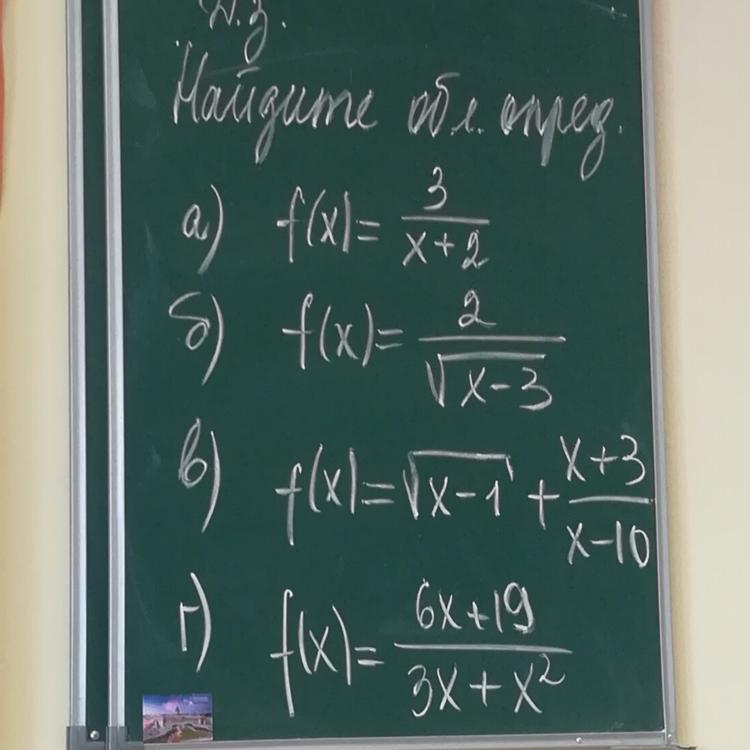 Д.з.
Найдите обл. опред.
а) f(x) = 3/(x+2)
б) f(x) = 2/√(x-3)
в) f(x) = √(x-1) + (x+3)/(x-10)
г) f(x) = (6x+19)/(3x+x²)